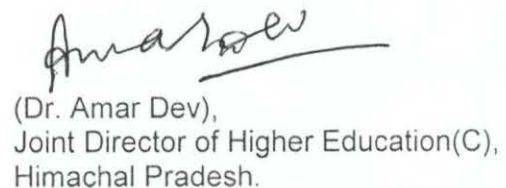 Amar Dev
(Dr. Amar Dev),
Joint Director of Higher Education(C),
Himachal Pradesh.